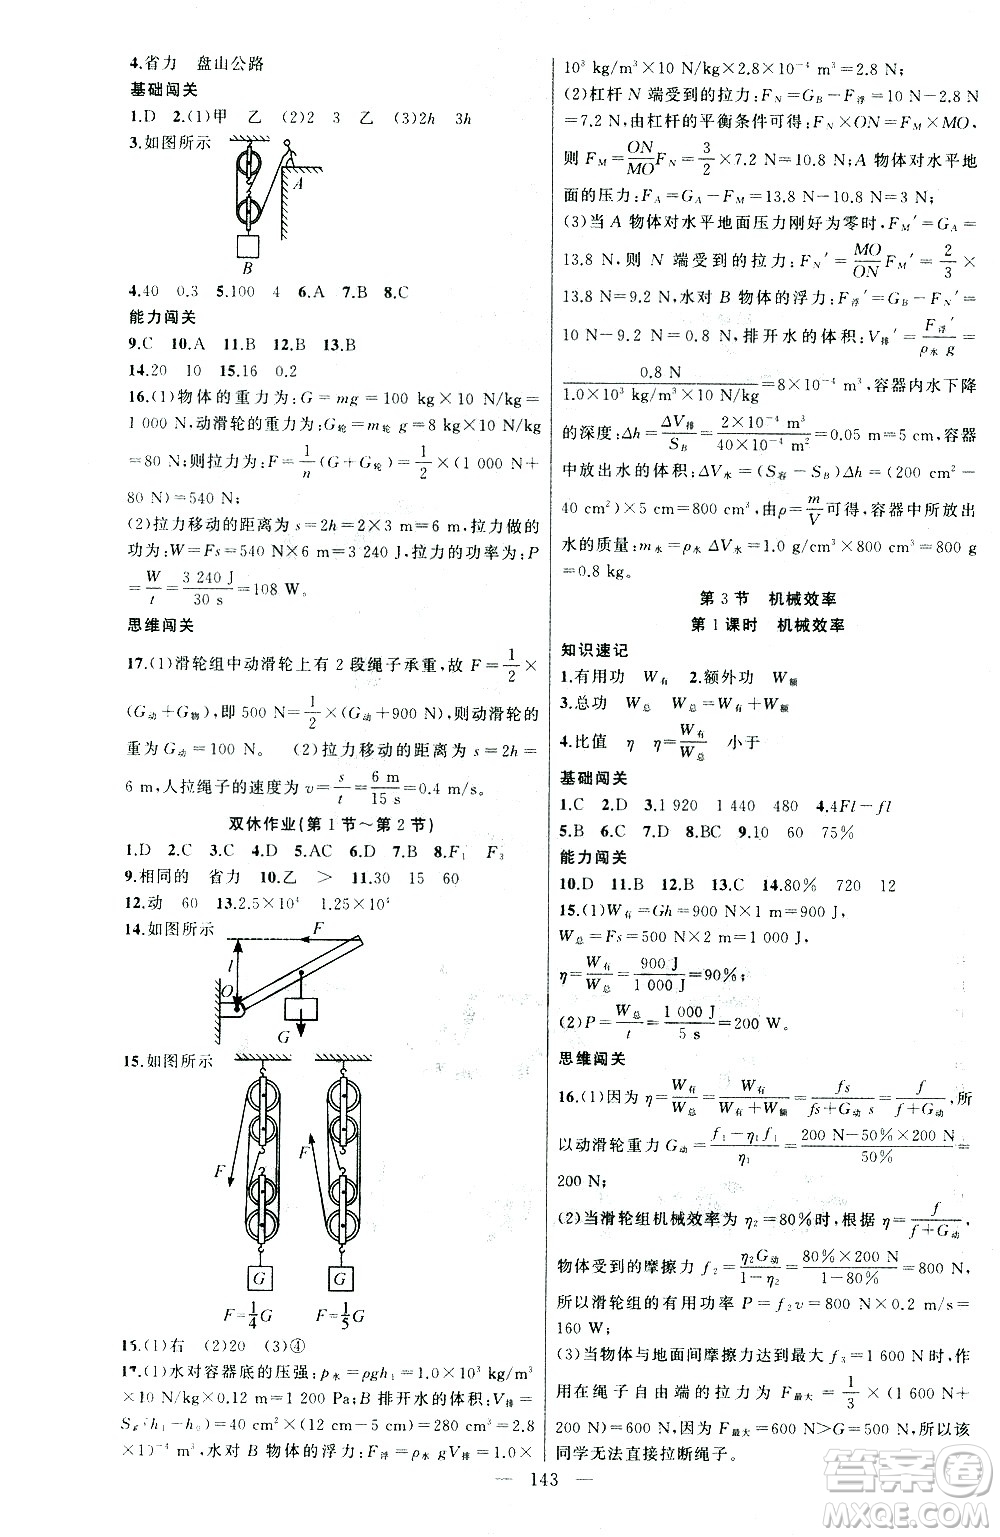 4.省力 盘山公路
基础闯关
1.D 2.(1)甲 乙 (2)2 3 乙 (3)2h 3h
3.如图所示
A
B
4.40 0.3 5.100 4 6.A 7.B 8.C
能力闯关
9.C 10.A 11.B 12.B 13.B
14.20 10 15.16 0.2
16.(1)物体的重力为:G=mg=100 kg×10 N/kg=
1 000 N,动滑轮的重力为:G轮=m轮 g=8 kg×10 N/kg
=80 N;则拉力为:F=1/n(G+G轮)=1/2×(1 000 N+
80 N)=540 N;
(2)拉力移动的距离为 s=2h=2×3 m=6 m,拉力做的
功为:W=Fs=540 N×6 m=3 240 J,拉力的功率为:P
=W/t=3 240 J/30 s=108 W.
思维闯关
17.(1)滑轮组中动滑轮上有 2 段绳子承重,故 F=1/2×
(G动+G物),即 500 N=1/2×(G动+900 N),则动滑轮的
重为 G动=100 N。 (2)拉力移动的距离为 s=2h=
6 m,人拉绳子的速度为 v=s/t=6 m/15 s=0.4 m/s。
双休作业(第 1 节~第 2 节)
1.D 2.C 3.C 4.D 5.AC 6.D 7.B 8.F1 F3
9.相同的 省力 10.乙 > 11.30 15 60
12.动 60 13.2.5×10⁴ 1.25×10⁵
14.如图所示
F
l
O
G
15.如图所示
F
F
G
G
F=1/4G F=1/5G
15.(1)右 (2)20 (3)④
17.(1)水对容器底的压强:p水=ρgh1=1.0×10³ kg/m³
×10 N/kg×0.12 m=1 200 Pa;B 排开水的体积:V排=
(h1-h0)=40 cm²×(12 cm-5 cm)=280 cm³=2.8
×10⁻⁴ m³,水对 B 物体的浮力:F浮=ρ水 gV排=1.0×
10³ kg/m³×10 N/kg×2.8×10⁻⁴ m³=2.8 N;
(2)杠杆 N 端受到的拉力:FN=GB-F浮=10 N-2.8 N
=7.2 N,由杠杆的平衡条件可得:FN×ON=FM×MO,
则 FM=ON/MO FN=3/2×7.2 N=10.8 N;A 物体对水平地
面的压力:FA=GA-FM=13.8 N-10.8 N=3 N;
(3)当 A 物体对水平地面压力刚好为零时,FM′=GA=
13.8 N,则 N 端受到的拉力:FN′=MO/ON FM′=2/3×
13.8 N=9.2 N,水对 B 物体的浮力:F浮′=GB-FN′=
10 N-9.2 N=0.8 N,排开水的体积:V排′=F浮′/ρ水 g=
0.8 N/1.0×10³ kg/m³×10 N/kg=8×10⁻⁵ m³,容器内水下降
的深度:Δh=ΔV排/SB=2×10⁻⁴ m³/40×10⁻⁴ m²=0.05 m=5 cm,容器
中放出水的体积:ΔV水=(S容-SB)Δh=(200 cm²-
40 cm²)×5 cm=800 cm³,由ρ=m/V可得,容器中所放出
水的质量:m水=ρ水 ΔV水=1.0 g/cm³×800 cm³=800 g
=0.8 kg。
第 3 节 机械效率
第 1 课时 机械效率
知识速记
1.有用功 W有 2.额外功 W额
3.总功 W总 W总=W有+W额
4.比值 η η=W有/W总 小于
基础闯关
1.C 2.D 3.1 920 1 440 480 4.4Fl-fl
5.B 6.B 7.D 8.BC 9.10 60 75%
能力闯关
10.D 11.A 12.C 13.C 14.80% 720 12
15.(1)W有=Gh=900 N×1 m=900 J,
W总=Fs=500 N×2 m=1 000 J,
η=W有/W总=900 J/1 000 J=90%;
(2)P=W总/t=1 000 J/5 s=200 W。
思维闯关
16.(1)因为 η=W有/W总=W有/W有+W额=fs/fs+G动 s=f/f+G动,所
以动滑轮重力 G动=f1-η1f1/η1=200 N-50%×200 N/50%=
200 N;
(2)当滑轮组机械效率为 η2=80%时,根据 η=f/f+G动,
物体受到的摩擦力 f2=η2G动/1-η2=80%×200 N/1-80%=800 N,
所以滑轮组的有用功率 P=f2v=800 N×0.2 m/s=
160 W;
(3)当物体与地面间摩擦力达到最大 f3=1 600 N时,作
用在绳子自由端的拉力为 F最大=1/3×(1 600 N+
200 N)=600 N,因为 F最大=600 N>G=500 N,所以该
同学无法直接拉断绳子。
143
答案圈
MXQE.COM